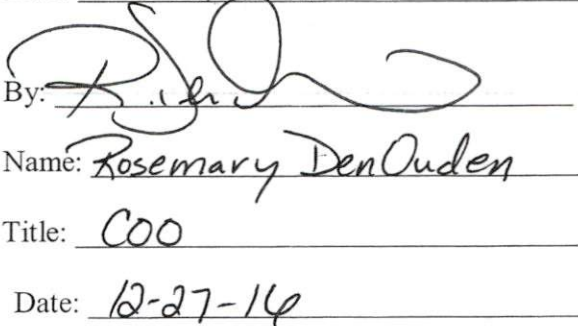 By:
Name: Rosemary DenOuden
Title: COO
Date: 12-27-16